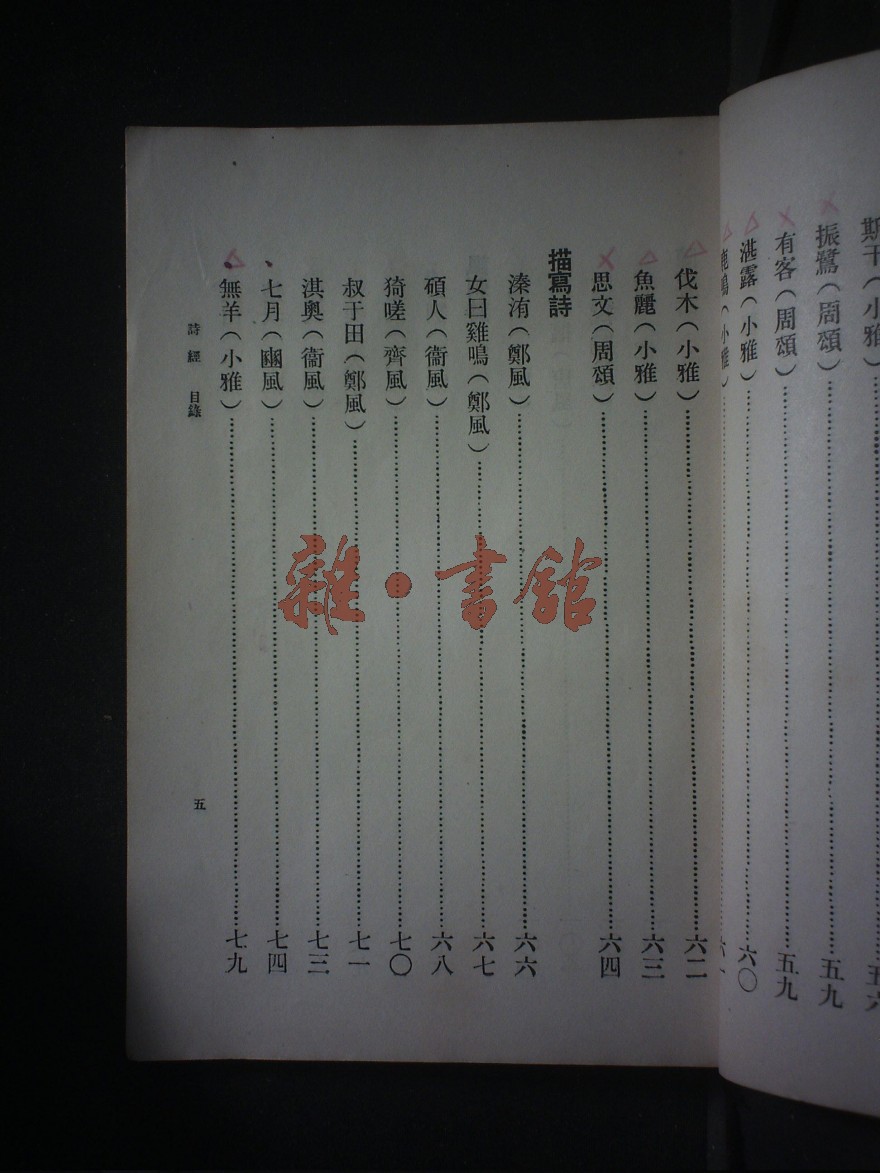 斯干（小雅）……五六
振鷺（周頌）……五九
有客（周頌）……五九
湛露（小雅）……六〇
鹿鳴（小雅）……六一
伐木（小雅）……六二
魚麗（小雅）……六三
思文（周頌）……六四
描寫詩
溱洧（鄭風）……六六
女曰雞鳴（鄭風）……六七
碩人（衞風）……六八
猗嗟（齊風）……七〇
叔于田（鄭風）……七一
淇奧（衞風）……七三
七月（豳風）……七四
無羊（小雅）……七九
詩經 目錄
五
雜·書館